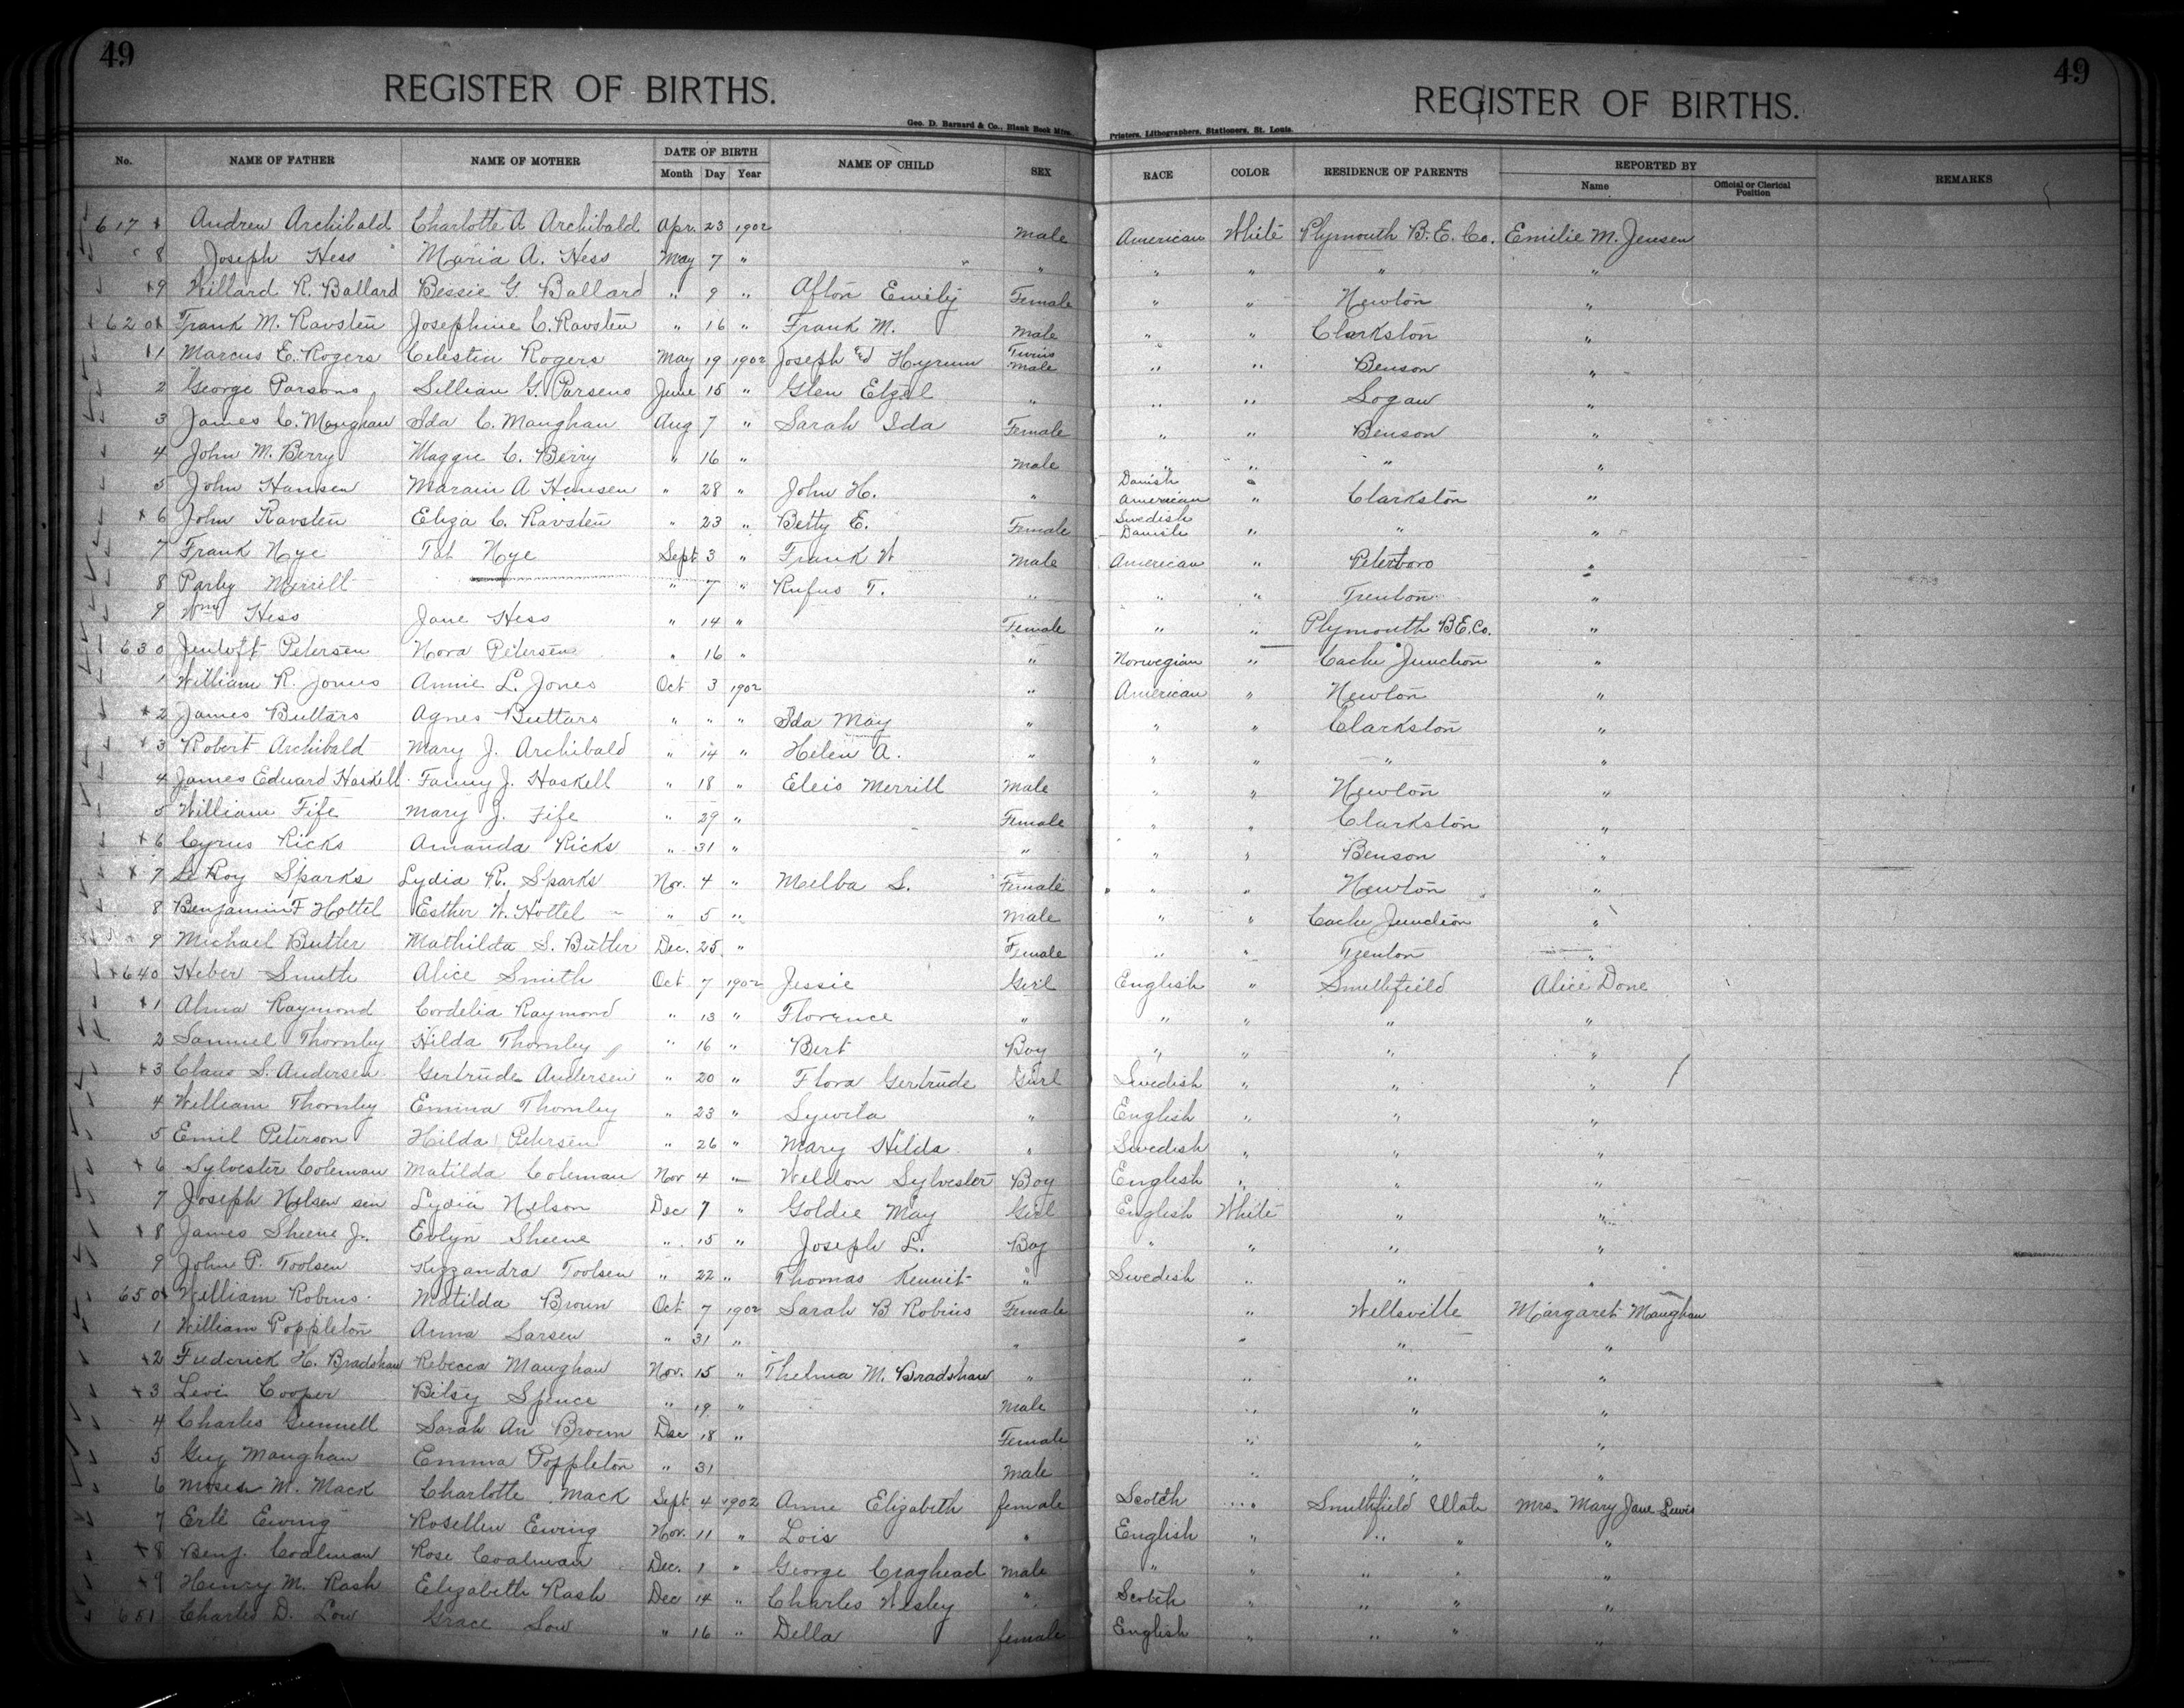 49
REGISTER OF BIRTHS.
Geo. D. Barnard & Co., Blank Book Mfrs.,
49
REGISTER OF BIRTHS.
Printers, Lithographers, Stationers, St. Louis.
No. NAME OF FATHER NAME OF MOTHER DATE OF BIRTH Month Day Year NAME OF CHILD SEX RACE COLOR RESIDENCE OF PARENTS REPORTED BY Name Official or Clerical Position REMARKS
617 x Andrew Archibald Charlotte A Archibald Apr. 23 1902 Male American White Plymouth B. E. Co. Emilie M. Jensen
8 Joseph Hess Maria A. Hess May 7 " " " " " "
x9 Willard R. Ballard Bessie G. Ballard " 9 " Afton Emily Female " " Newton "
x 620x Frank M. Ravsten Josephine C. Ravsten " 16 " Frank M. Male " " Clarkston "
x1 Marcus E. Rogers Celestia Rogers May 19 1902 Joseph & Hyrum Twins Male " " Benson "
2 George Parsons Lillian G. Parsens June 15 " Glen " " " Logan "
3 James C. Maughan Ida C. Maughan Aug 7 " Sarah Ida Female " " Benson "
4 John M. Berry Maggie C. Berry " 16 " Male " " " "
5 John Hansen A Hansen " 28 " John H. " Danish American " Clarkston "
x 6 John Ravsten Eliza C. Ravsten " 23 " Betty E. Female Swedish Danish " " "
7 Frank Nye Nye Sept 3 " Frank W Male American " Peterboro "
8 Parley Merrill " 7 " Rufus T. " " " Trenton "
9 Wm Hess Jane Hess " 14 " Female " " Plymouth B.E.Co. "
630 Jentoft Petersen Nora Petersen " 16 " " Norwegian " Cache Junction "
1 William R. Jones Annie L. Jones Oct 3 1902 " American " Newton "
x2 James Buttars Agnes Buttars " " " Ida May " " " Clarkston "
x 3 Robert Archibald Mary J. Archibald " 14 " Helen A. " " " " "
4 James Edward Haskell Fanny J. Haskell " 18 " Merrill Male " " Newton "
5 William Fife Mary J. Fife " 29 " Female " " Clarkston "
x 6 Cyrus Ricks Amanda Ricks " 31 " " " " Benson "
x 7 Le Roy Sparks Lydia R. Sparks Nov. 4 " Melba S. Female " " Newton "
8 Benjamin F Hottel Esther W. Hottel " 5 " Male " " Cache Junction "
9 Michael Butler Mathilda S. Butler Dec. 25 " Female " " Trenton "
x640 Heber Smith Alice Smith Oct 7 1902 Jessie Girl English " Smithfield Alice Done
x1 Alma Raymond Cordelia Raymond " 13 " Florence " " " " "
2 Samuel Thornley Hilda Thornley " 16 " Bert Boy " " " "
x3 Claus S. Andersen Gertrude Andersen " 20 " Flora Gertrude Girl Swedish " " "
4 William Thornley Emma Thornley " 23 " Sywila " English " " "
5 Emil Peterson Hilda Petersen " 26 " Mary Hilda " Swedish " " "
x 6 Sylvester Coleman Matilda Coleman Nov 4 " Weldon Sylvester Boy English " " "
7 Joseph Nelson sen Lydia Nelson Dec 7 " Goldie May Girl English White " "
x 8 James Sheene Jr. Evlyn Sheene " 15 " Joseph L. Boy " " " "
9 John P. Toolsen Kizzandra Toolsen " 22 " Thomas " Swedish " " "
650x William Robins Matilda Brown Oct 7 1902 Sarah B Robins Female " Wellsville Margaret Maughan
1 William Poppleton Anna Larsen " 31 " " " " "
x2 Frederick H. Bradshaw Rebecca Maughan Nov. 15 " Thelma M. Bradshaw " " " "
x3 Levi Cooper Bitsy Spence " 19 " Male " " "
4 Charles Gunnell Sarah An Brown Dec 18 " Female " " "
5 Guy Maughan Emma Poppleton " 31 Male " " "
6 Moses M. Mack Charlotte Mack Sept 4 1902 Anne Elizabeth female Scotch " Smithfield Utah Mrs. Mary Jane Lewis
7 Ewing Rosellen Ewing Nov. 11 " Lois " English " " " "
x8 Benj. Coalman Rose Coalman Dec. 1 " George Craghead male " " " " "
x9 Henry M. Rash Elizabeth Rash Dec 14 " Charles Wesley " Scotch " " " "
651 Charles D. Low Grace Low " 16 " Della female English " " " "